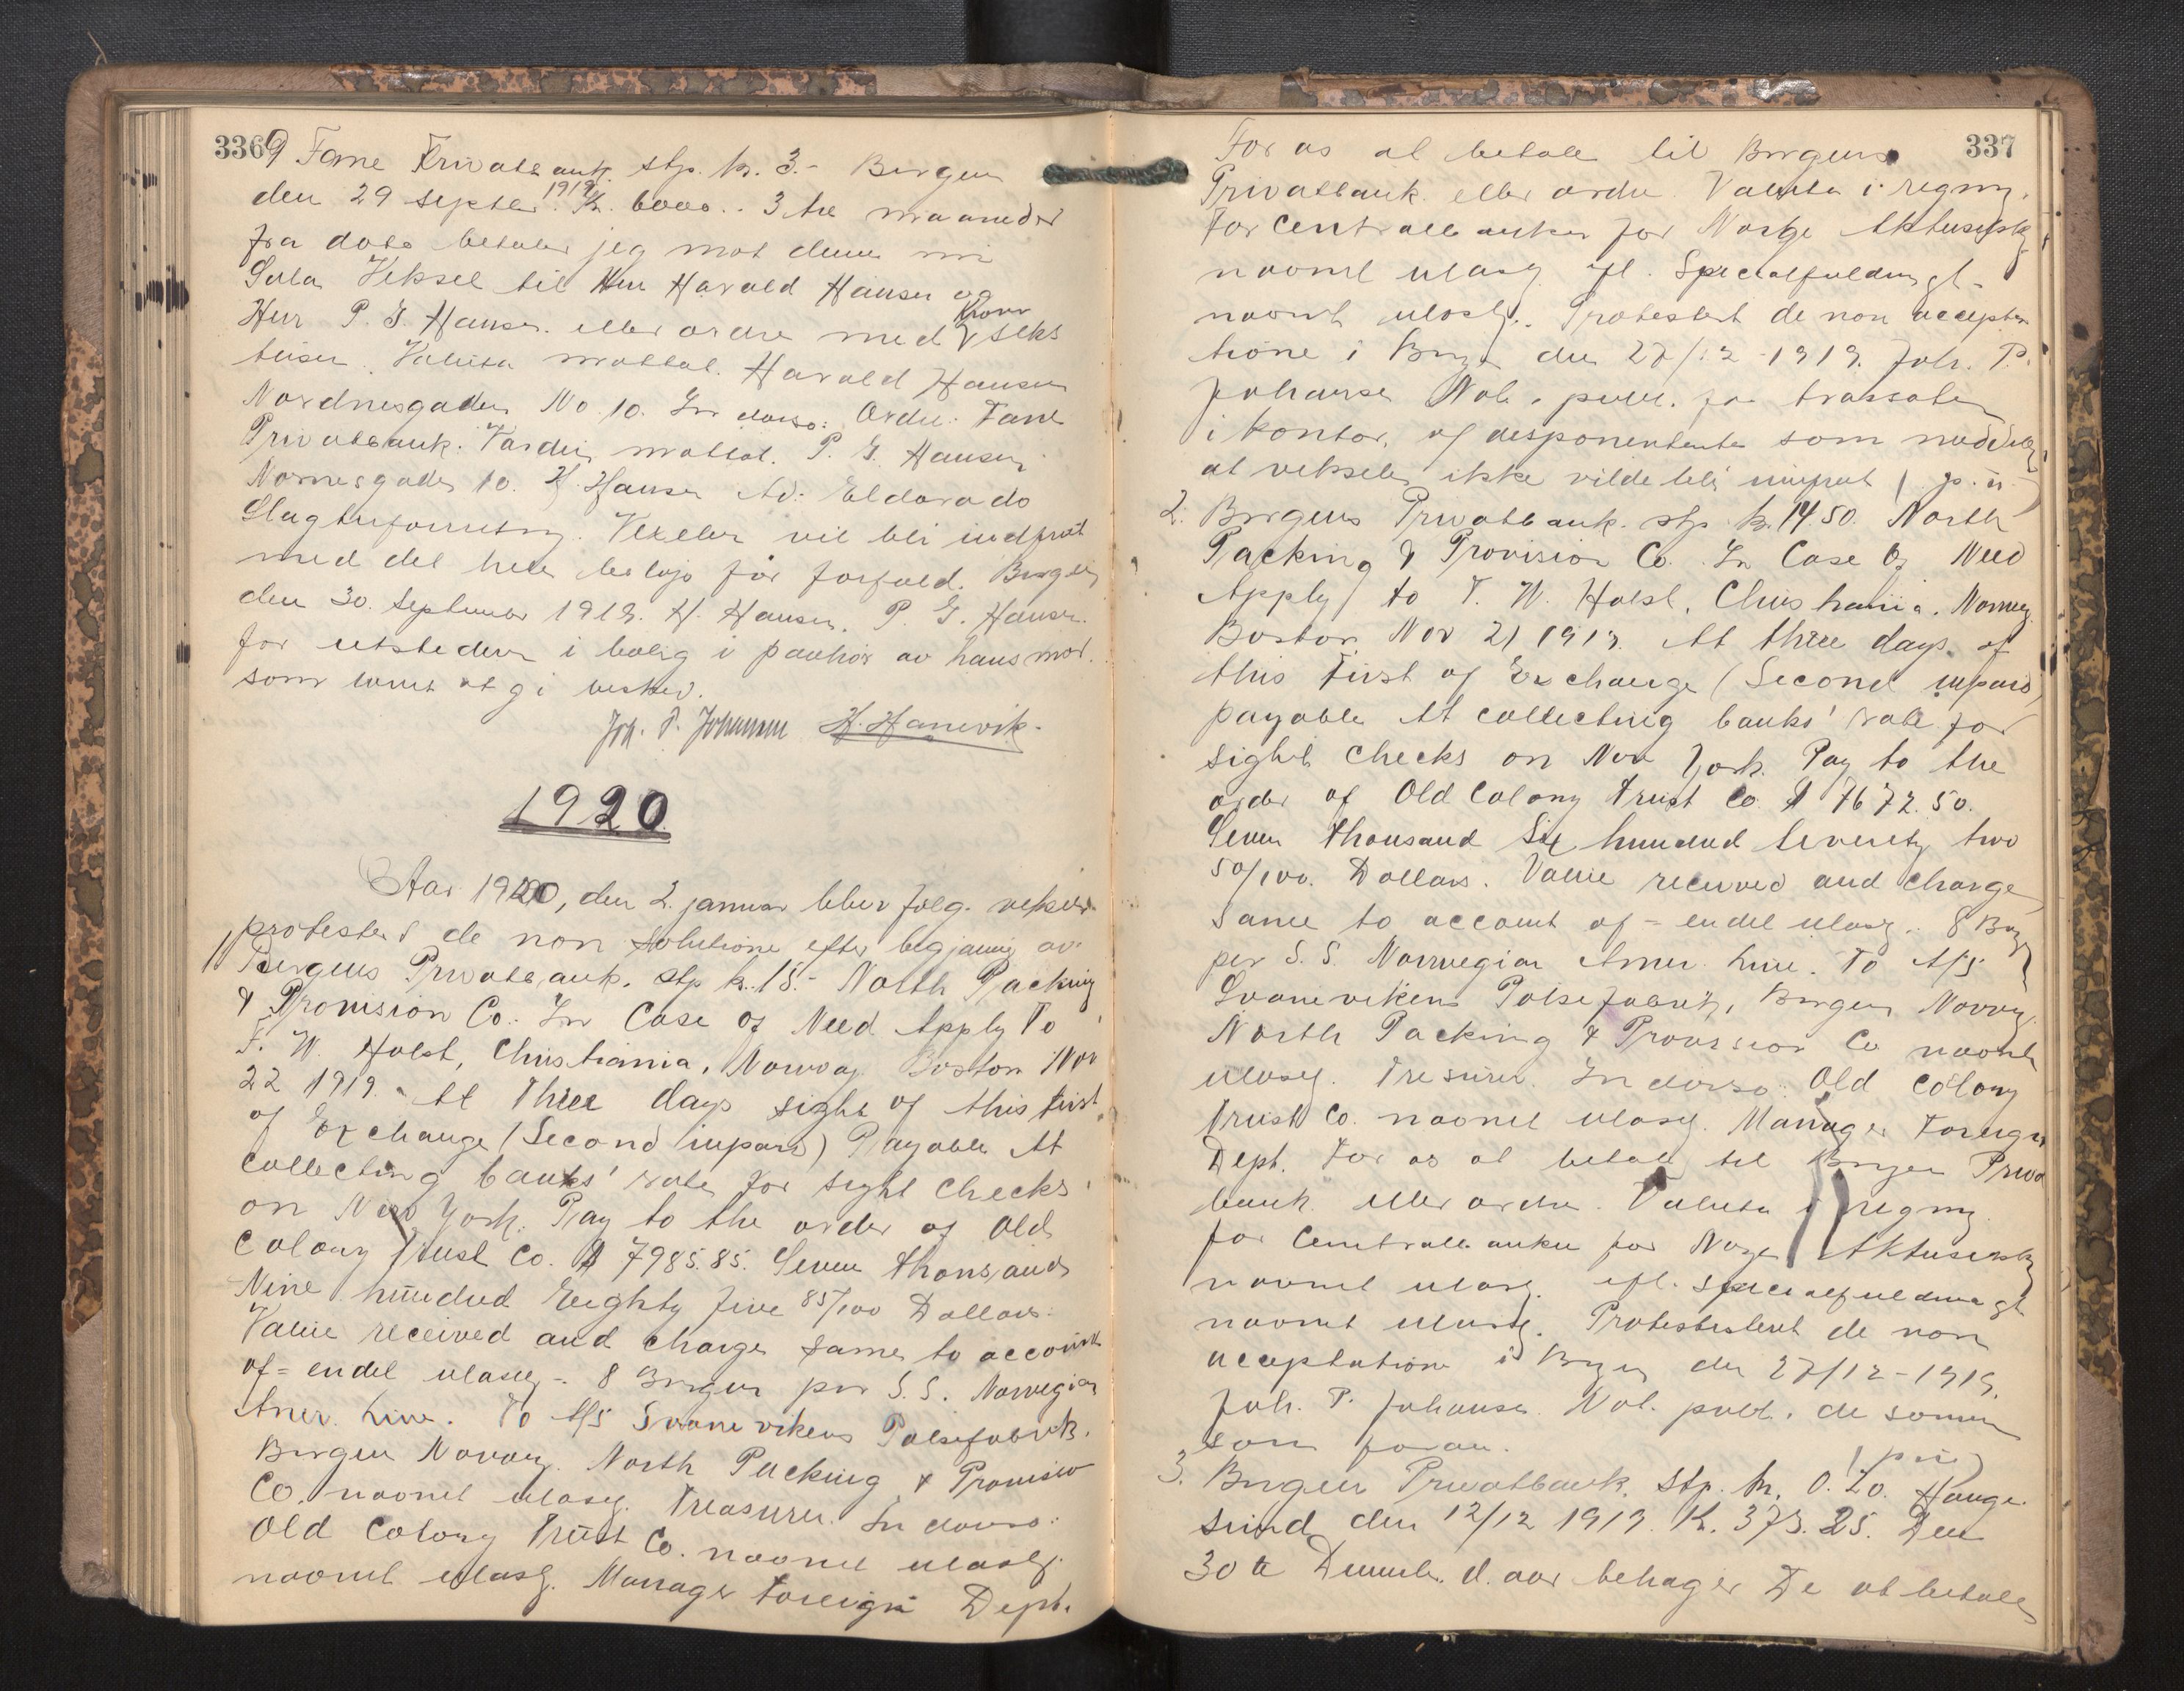 336
9 Fane Privatbank. stp. kr. 3.- Bergen
den 29 septbr. 1919. Kr. 6000.. 3 tre maaneder
fra dato betaler jeg mot denne min
Sola Veksel til Herr Harald Hansen og
Herr P. G. Hansen. eller ordre med Kroner seks
tusen. Valuta mottat. Harald Hansen
Nordnesgaden No. 10. In dorso: Ordre Fane
Privatbank. Værdien mottat. P. G. Hansen
Nornesgaden 10. H. Hansen Ad: Eldorado
Slagterforretng. Vexelen vil bli indfriet
med det hele beløp før forfald. Bergen
den 30. September 1919. H. Hansen. P. G. Hansen.
for utstederen i bolig i paahør av hans mor.
som lovet at gi besked.
Joh. P. Johannsen H. Hanevik.
1920
Aar 1920, den 2. januar blev følg. veksler
protestert de non solutione efter begjæring av
1) Bergens Privatbank. stp kr. 15.- North Packing
& Provision Co. In Case of Need Apply To
F. W. Holst, Christiania, Norway Boston Nov
22 1919. At Three days sight of this first
of Exchange (Second unpaid) Payable At
Collecting banks' rate for sight Checks
on New York. Pay to the order of Old
Colony Trust Co. $ 7985.85. Seven thousand
Nine hundred Eeighty five 85/100 Dollars.
Value received and charge same to account
of = endel ulæselig - 8 Bergen per S. S. Norwegian
Amer. Line. To A/S Svanevikens Pølsefabrik.
Bergen Norway. North Packing & Provision
Co. navnet ulæselig. Treasurer. In dorso:
Old Colony Trust Co. navnet ulæselig.
navnet ulæselig. Manager Foreign Dept.
337
For os at betale til Bergens
Privatbank eller ordre. Valuta i regning.
For Centralbanken for Norge Aktieselsk
navnet ulæselig ifl. Specialfuldmagt -
navnet ulæselig. Protestert de non accepta
tione i Bergen den 27/12 - 1919. Joh. P.
Johansen Not. publ. for trassaten
i kontor, af disponenten som meddelte
at vekselen ikke vilde bli innfriet
2. Bergens Privatbank. stp kr. 14.50. North
Packing & Provision Co. In Case Of Need
Apply to F. W. Holst, Christiania, Norway.
Boston Nov 21 1919. At three days of
this First of Exchange (Second unpaid)
payable At collecting banks' rate for
sight checks on New York. Pay to the
order of Old Colony Trust Co. $ 7672.50.
Seven thousand Six hundred Seventy two
50/100. Dollars. Value received and charge
same to account of = endel ulæselig.. 8 Bergen
per S. S. Norwegian Amer. Line. To A/S
Svanevikens Pølsefabrik, Bergen Norway.
North Packing & Provision Co navnet
ulæselig. Tresurer. In dorso: Old Colony
Trust Co. navnet ulæselig. Manager Foreign
Dept. For os at betale til Bergen Privat
bank eller ordre. Valuta i regning.
for Centralbanken for Norge Aktieselsk
navnet ulæselig. ifl. specialfuldmagt
navnet ulæselig. Protesterlert de non
acceptatione i Bergen den 27/12 - 1919.
Joh. P. Johansen. Not. publ. de samme
som foran.
3. Bergen Privatbank. stp. kr. 0.20. Hauge-
sund den 12/12 1919. Kr. 373.25. Den
30 te Decembr. d. aar behager De at betale